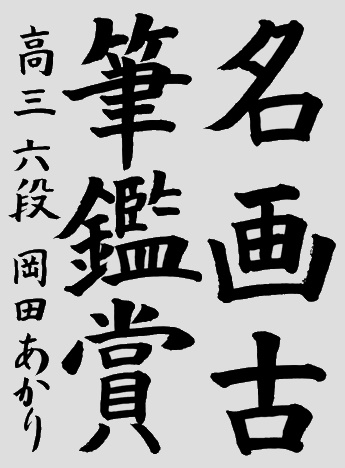 名画古
筆鑑賞
高三 六段 岡田あかり